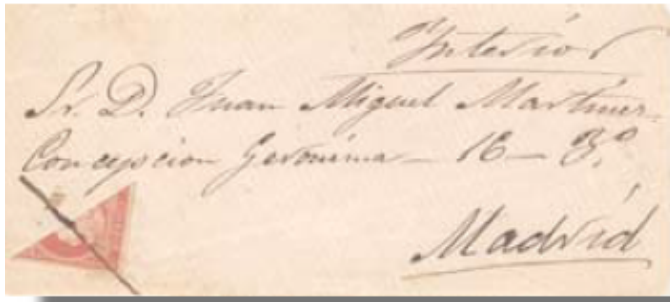 Interior
Sr. D. Juan Miguel Martinez
Concepcion Geronima - 16 - 3º
Madrid